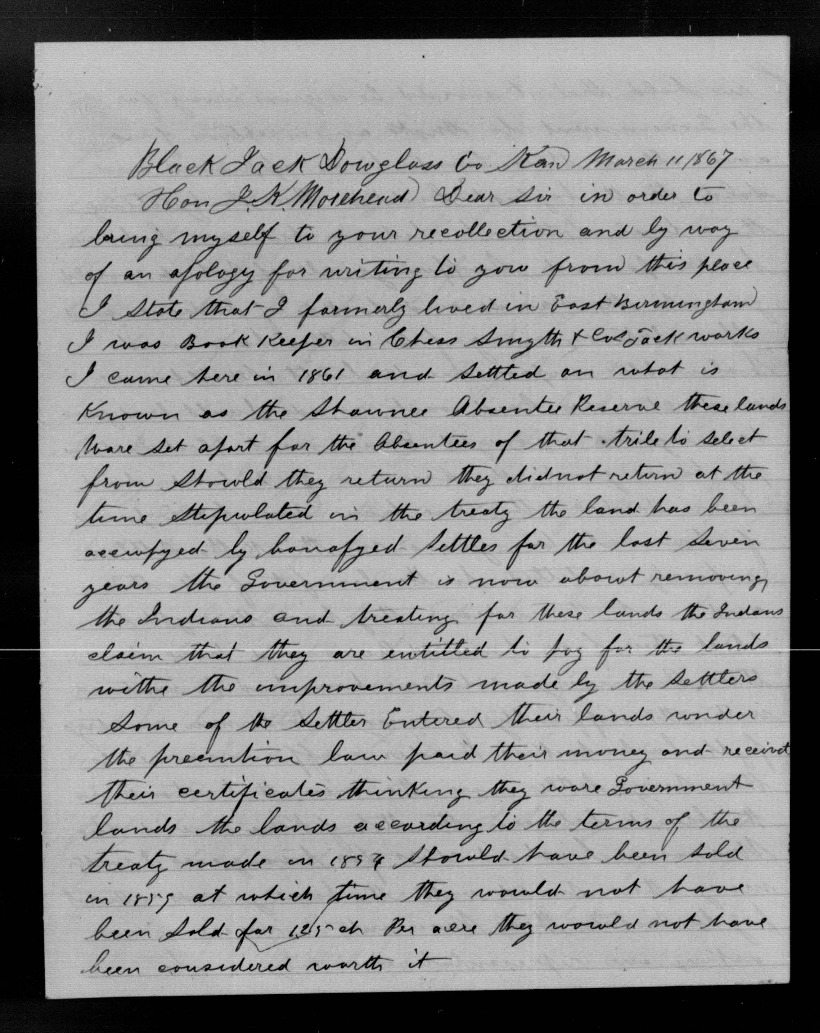 Black Jack Dowglass Co Kan March 11 1867
Hon J. K. Moorhead Dear Sir in order to
bring myself to your recollection and by way
of an apology for writing to yow from this place
I State that I formerly lived in East Birmingham
I was Book Keeper in Chess Smyth & Cos Tack works
I came here in 1861 and settled on what is
Known as the Shawnee Absentee Reserve these lands
ware set apart for the Absentees of that tribe to select
from showld they return they did not return at the
time stipwlated in the treaty the land has been
accwpyed by bonafyed Settles for the last Seven
years the Government is now abowt removing
the Indians and treating for these lands the Indians
claim that they are entitled to pay for the lands
withe the improvements made by the Settlers
Some of the Settler Entered their lands wnder
the preemtion law paid their money and received
their certificates thinking they ware Government
lands the lands according to the terms of the
treaty made in 1854 showld have been sold
in 1859 at which time they wowld not have
been Sold for 125 ct Per acre they wowld not have
been considered worth it